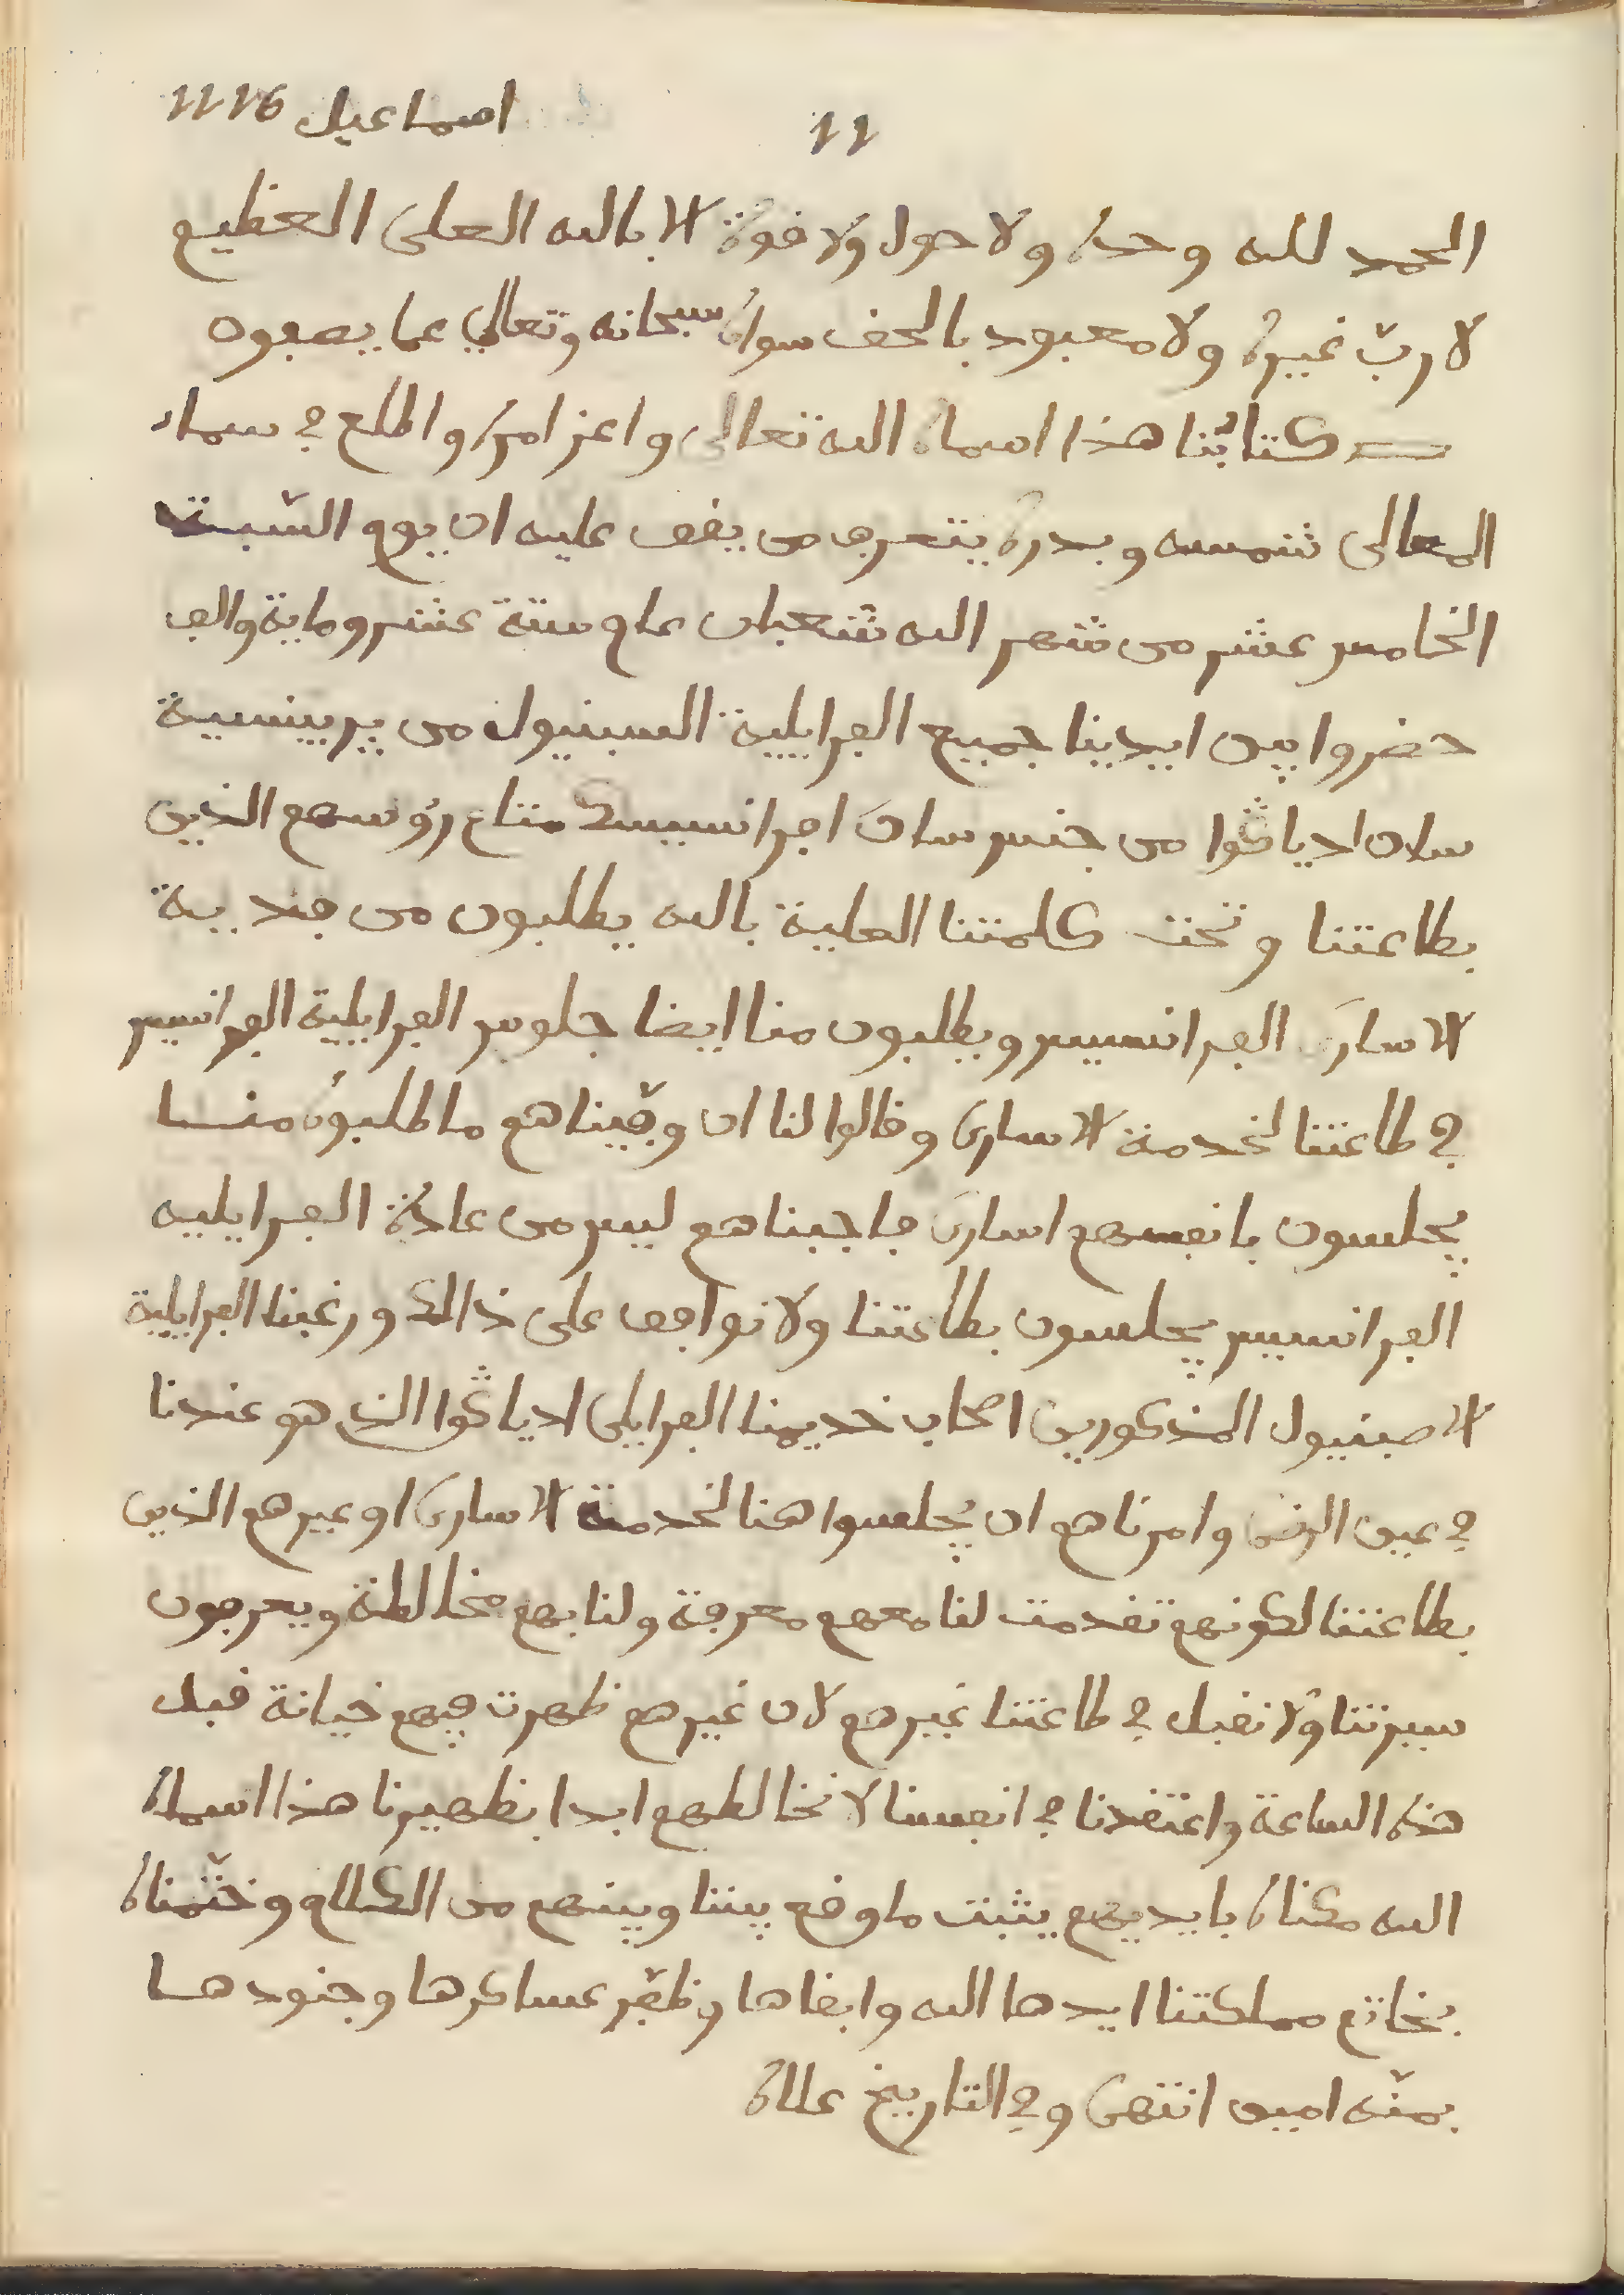 اسماعيل 1116
11
الحمد لله وحده ولا حول ولا قوة الا بالله العلى العظيم
لا ربّ غيره ولا معبود بالحق سواه سبحانه وتعالى عما يصفون
كتابُنا هذا اسماه الله تعالى واعز امره واطلع في سماء
المعالى شمسه وبدره يتعرف من يقف عليه ان يوم السّبت
الخامس عشر من شهر الله شعبان عام ستة عشر وماية والف
حضروا بين ايدينا جميع الفرايلية السبنيول من پربينسية
سان ادياڨوا من جنس سان افرانسيسك متاع رؤسهم الذين
بطاعتنا وتحت كلمتنا العلية بالله يطلبون من فدية
الاسارى الفرانسيس ويطلبون منا ايضا جلوس الفرايلية الفرانسيس
في طاعتنا لخدمة الاسارى وقالوا لنا ان وفّيناهم ما طلبوه منا
يجلسون بانفسهم اسارى فاجبناهم ليس من عادة الفرايليه
الفرانسيس يجلسون بطاعتنا ولا نوافق على ذالك ورغبنا الفرايلية
الاصبنيول المذكورين اصحاب خديمنا الفرايلى ادياڨوا الذى هو عندنا
في عين الرضى وامرناهم ان يجلسوا هنا لخدمة الاسارى او غيرهم الذين
بطاعتنا لكونهم تقدمت لنا معهم معرفة ولنا بهم مخالطة ويعرفون
سيرتنا ولا نقبل في طاعتنا غيرهم لان غيرهم ظهرت فيهم خيانة قبل
هذه الساعة واعتقدنا في انفسنا لا نخالطهم ابدا بظهيرنا هذا اسماه
الله مكناه بايديهم يثبت ما وقع بيننا وبينهم من الكلام وختّمناه
بخاتم مملكتنا ايدها الله وابقاها وظفّر عساكرها وجنودها
بمنّه امين انتهى وفي التاريخ علاه